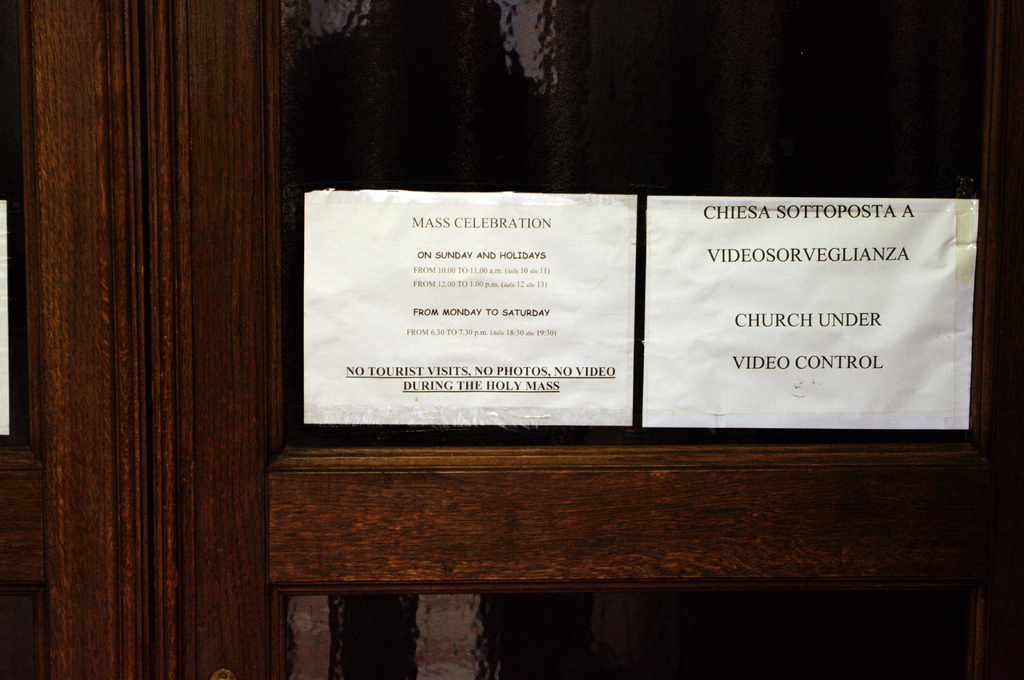 MASS CELEBRATION
ON SUNDAY AND HOLIDAYS
FROM 10.00 TO 11.00 a.m. (dalle 10 alle 11)
FROM 12.00 TO 1.00 p.m. (dalle 12 alle 13)
FROM MONDAY TO SATURDAY
FROM 6.30 TO 7.30 p.m. (dalle 18:30 alle 19:30)
NO TOURIST VISITS, NO PHOTOS, NO VIDEO
DURING THE HOLY MASS
CHIESA SOTTOPOSTA A
VIDEOSORVEGLIANZA
CHURCH UNDER
VIDEO CONTROL